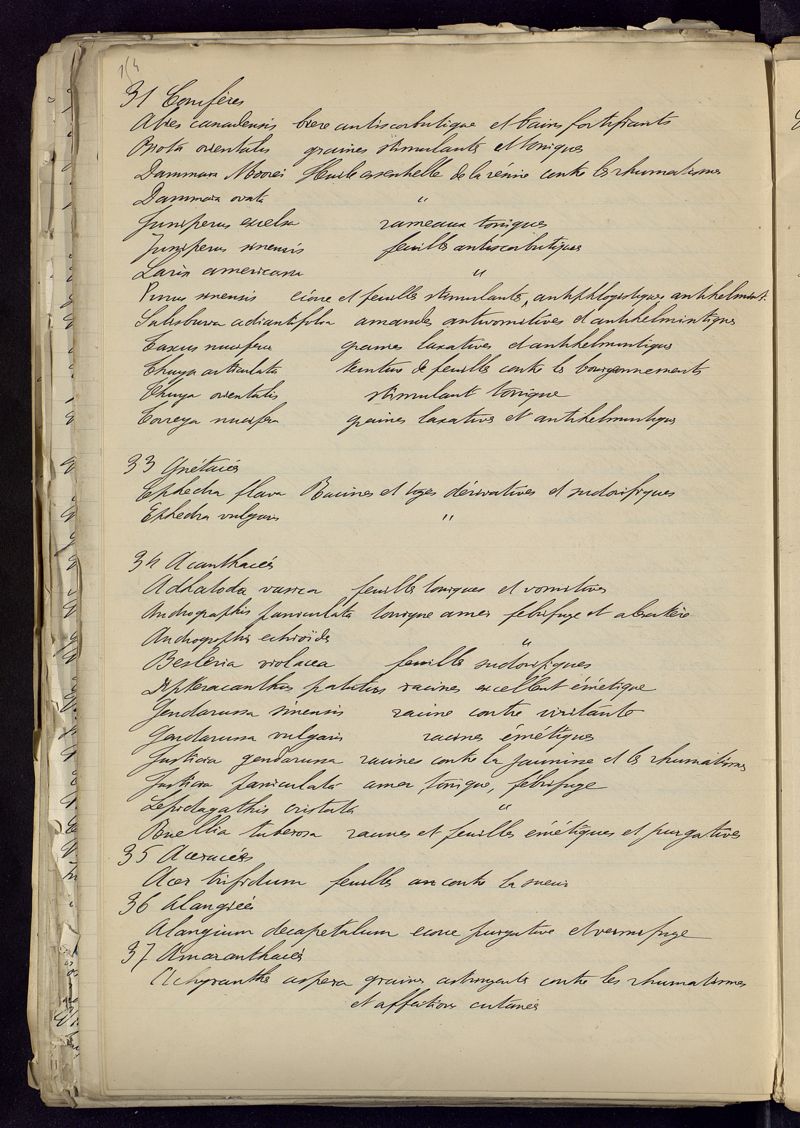 154
31 Conifères
Abies canadensis biere antiscorbutique et bains fortifiants
Biota orientalis graines stimulantes et toniques
Dammara Moorei Huile essentielle de la résine contre les rhumatismes
Dammara ovata "
Juniperus excelsa rameaux toniques
Juniperus sinensis feuilles antiscorbutiques
Larix americana "
Pinus sinensis cône et feuilles stimulantes, antiphlogistiques antihelmint.
Salisburia adiantifolia amandes antivomitives et antihelmintiques
Taxus nucifera graines laxatives et antihelmintiques
Thuya articulata teinture de feuilles contre les bourgeonnements
Thuya orientalis stimulant tonique
Torreya nucifera graines laxatives et antihelmintiques
33 Gnétacés
Ephedra flava Racines et tiges dérivatives et sudorifiques
Ephedra vulgaris "
34 Acanthacés
Adhatoda vasica feuilles toniques et vomitives
Andrographis paniculata tonique amer fébrifuge et
Andrographis echioïdes "
Besleria violacea feuilles sudorifiques
Dipteracanthus patulus racines excellent émétique
Gendarussa sinensis racine contre
Gendarussa vulgaris racines émétiques
Justicia gendarussa racines contre la jaunisse et les rhumatismes
Justicia paniculata amer tonique, fébrifuge
Lepidagathis cristata "
Ruellia tuberosa racines et feuilles émétiques et purgatives
35 Aceracées
Acer trifidum feuilles contre la
36 Alangiées
Alangium decapetalum ecorce purgative et vermifuge
37 Amaranthacés
Achyranthes aspera graines astringentes contre les rhumatismes
et affections cutanés